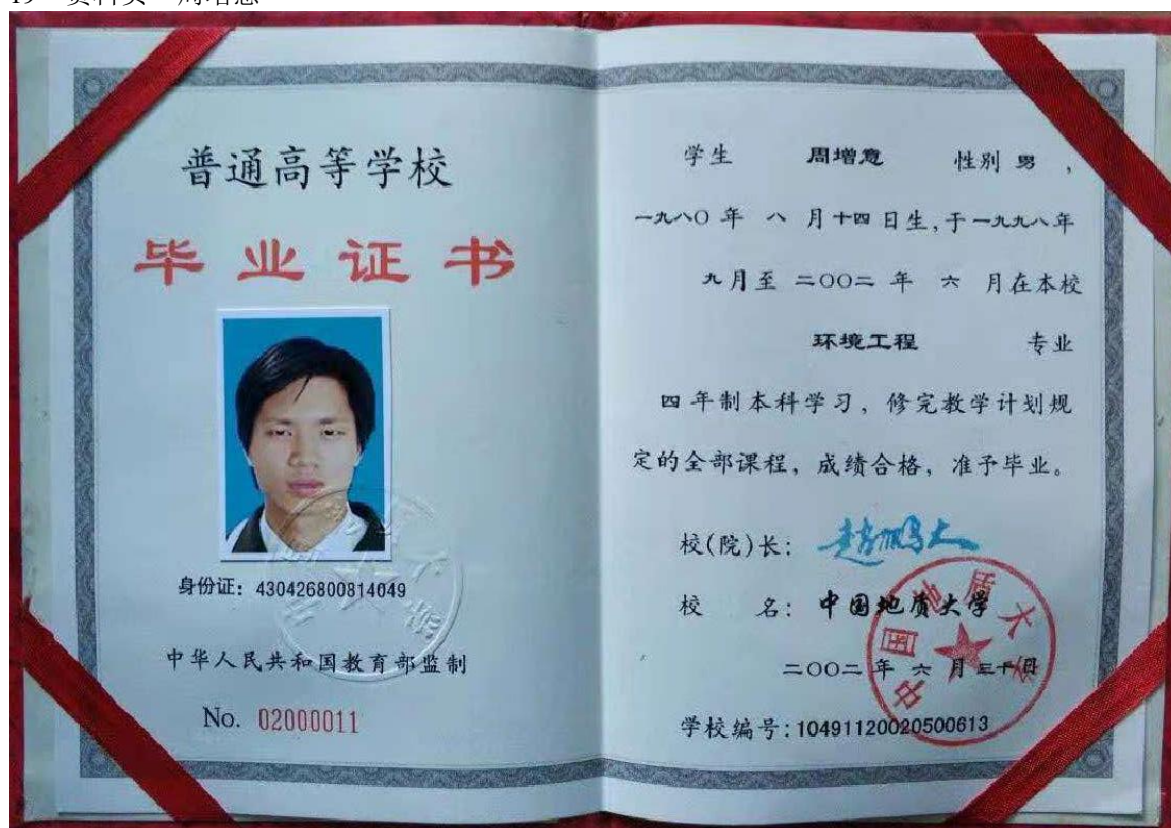 普通高等学校
毕业证书
身份证: 430426800814049
中华人民共和国教育部监制
No. 02000011
学生 周增意 性别 男 ,
一九八〇 年 八 月十四日生,于一九九八年
九月至 二〇〇二 年 六 月在本校
环境工程 专业
四 年制本科学习, 修完教学计划规
定的全部课程, 成绩合格, 准予毕业。
校(院)长: 赵鹏大
校 名: 中国地质大学
二〇〇二 年 六 月三十日
学校编号:10491120020500613
中国地质大学